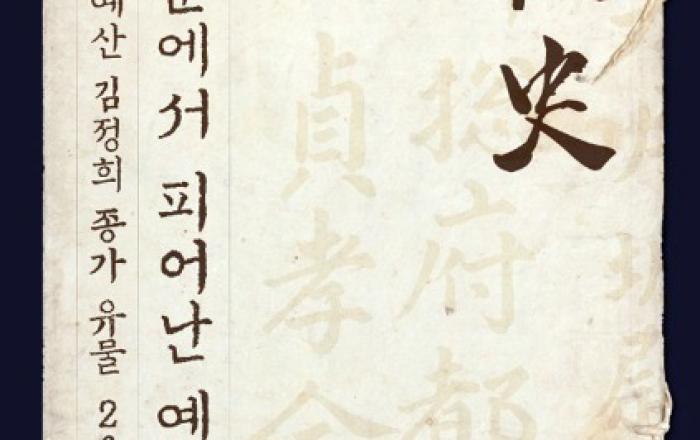 史
總府都
貞孝公
에서 피어난 예
예산 김정희 종가 유물 2